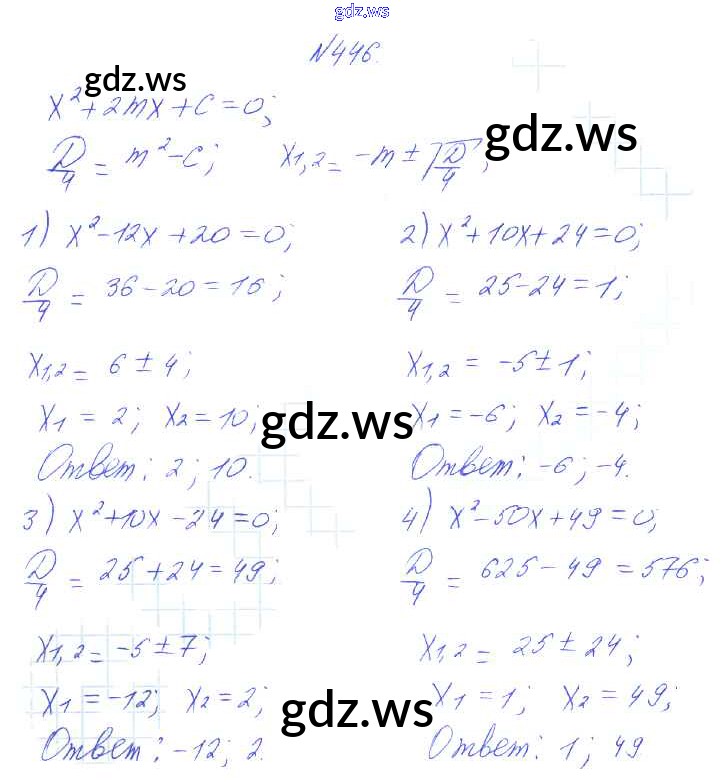 gdz.ws
№446.
gdz.ws
x²+2mx+c=0;
gdz.ws
D/4 = m²-c; x1,2 = -m ± √D/4;
1) x²-12x+20=0;
D/4 = 36-20=16;
x1,2 = 6 ± 4;
x1 = 2; x2=10;
Ответ: 2; 10.
2) x²+10x+24=0;
D/4 = 25-24=1;
x1,2 = -5±1;
x1=-6; x2=-4;
Ответ: -6; -4.
gdz.ws
3) x²+10x-24=0;
D/4 = 25+24=49;
x1,2 = -5±7;
x1=-12; x2=2;
Ответ: -12; 2.
4) x²-50x+49=0;
D/4 = 625-49=576;
x1,2 = 25 ± 24;
x1=1; x2=49;
Ответ: 1; 49
gdz.ws